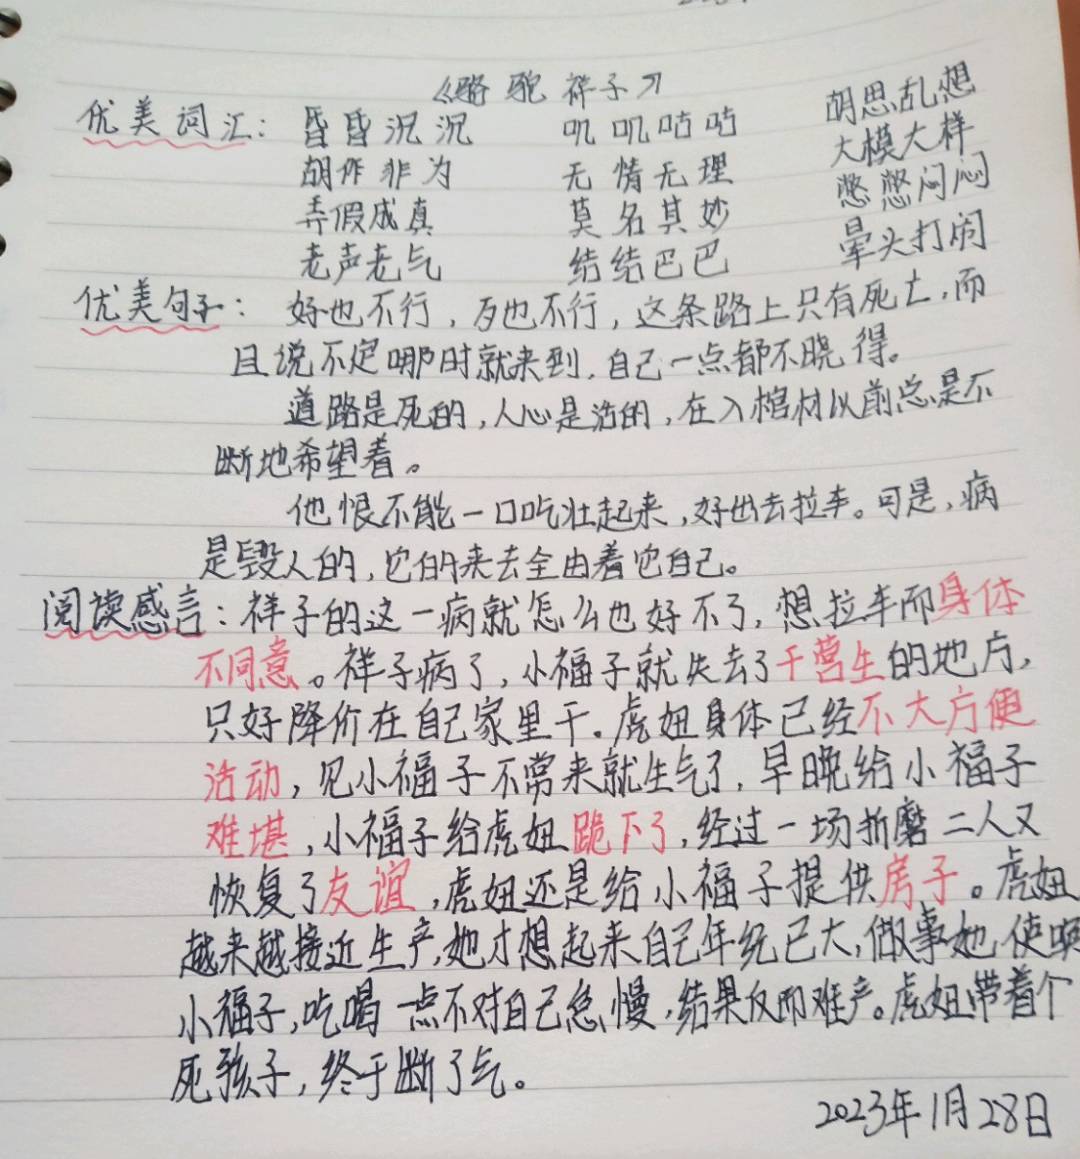 《骆驼祥子》
优美词汇：昏昏沉沉 叽叽咕咕 胡思乱想
胡作非为 无情无理 大模大样
弄假成真 莫名其妙 憋憋闷闷
老声老气 结结巴巴 晕头打闹
优美句子：好也不行，歹也不行，这条路上只有死亡，而
且说不定哪时就来到，自己一点都不晓得。
道路是死的，人心是活的，在入棺材以前总是不
断地希望着。
他恨不能一口吃壮起来，好出去拉车。可是，病
是毁人的，它的来去全由着它自己。
阅读感言：祥子的这一病就怎么也好不了，想拉车而身体
不同意。祥子病了，小福子就失去了干营生的地方，
只好降价在自己家里干。虎妞身体已经不大方便
活动，见小福子不常来就生气了，早晚给小福子
难堪，小福子给虎妞跪下了，经过一场折磨二人又
恢复了友谊，虎妞还是给小福子提供房子。虎妞
越来越接近生产，她才想起来自己年纪已大，做事她使唤
小福子，吃喝一点不对自己怠慢，结果反而难产。虎妞带着个
死孩子，终于断了气。
2023年1月28日